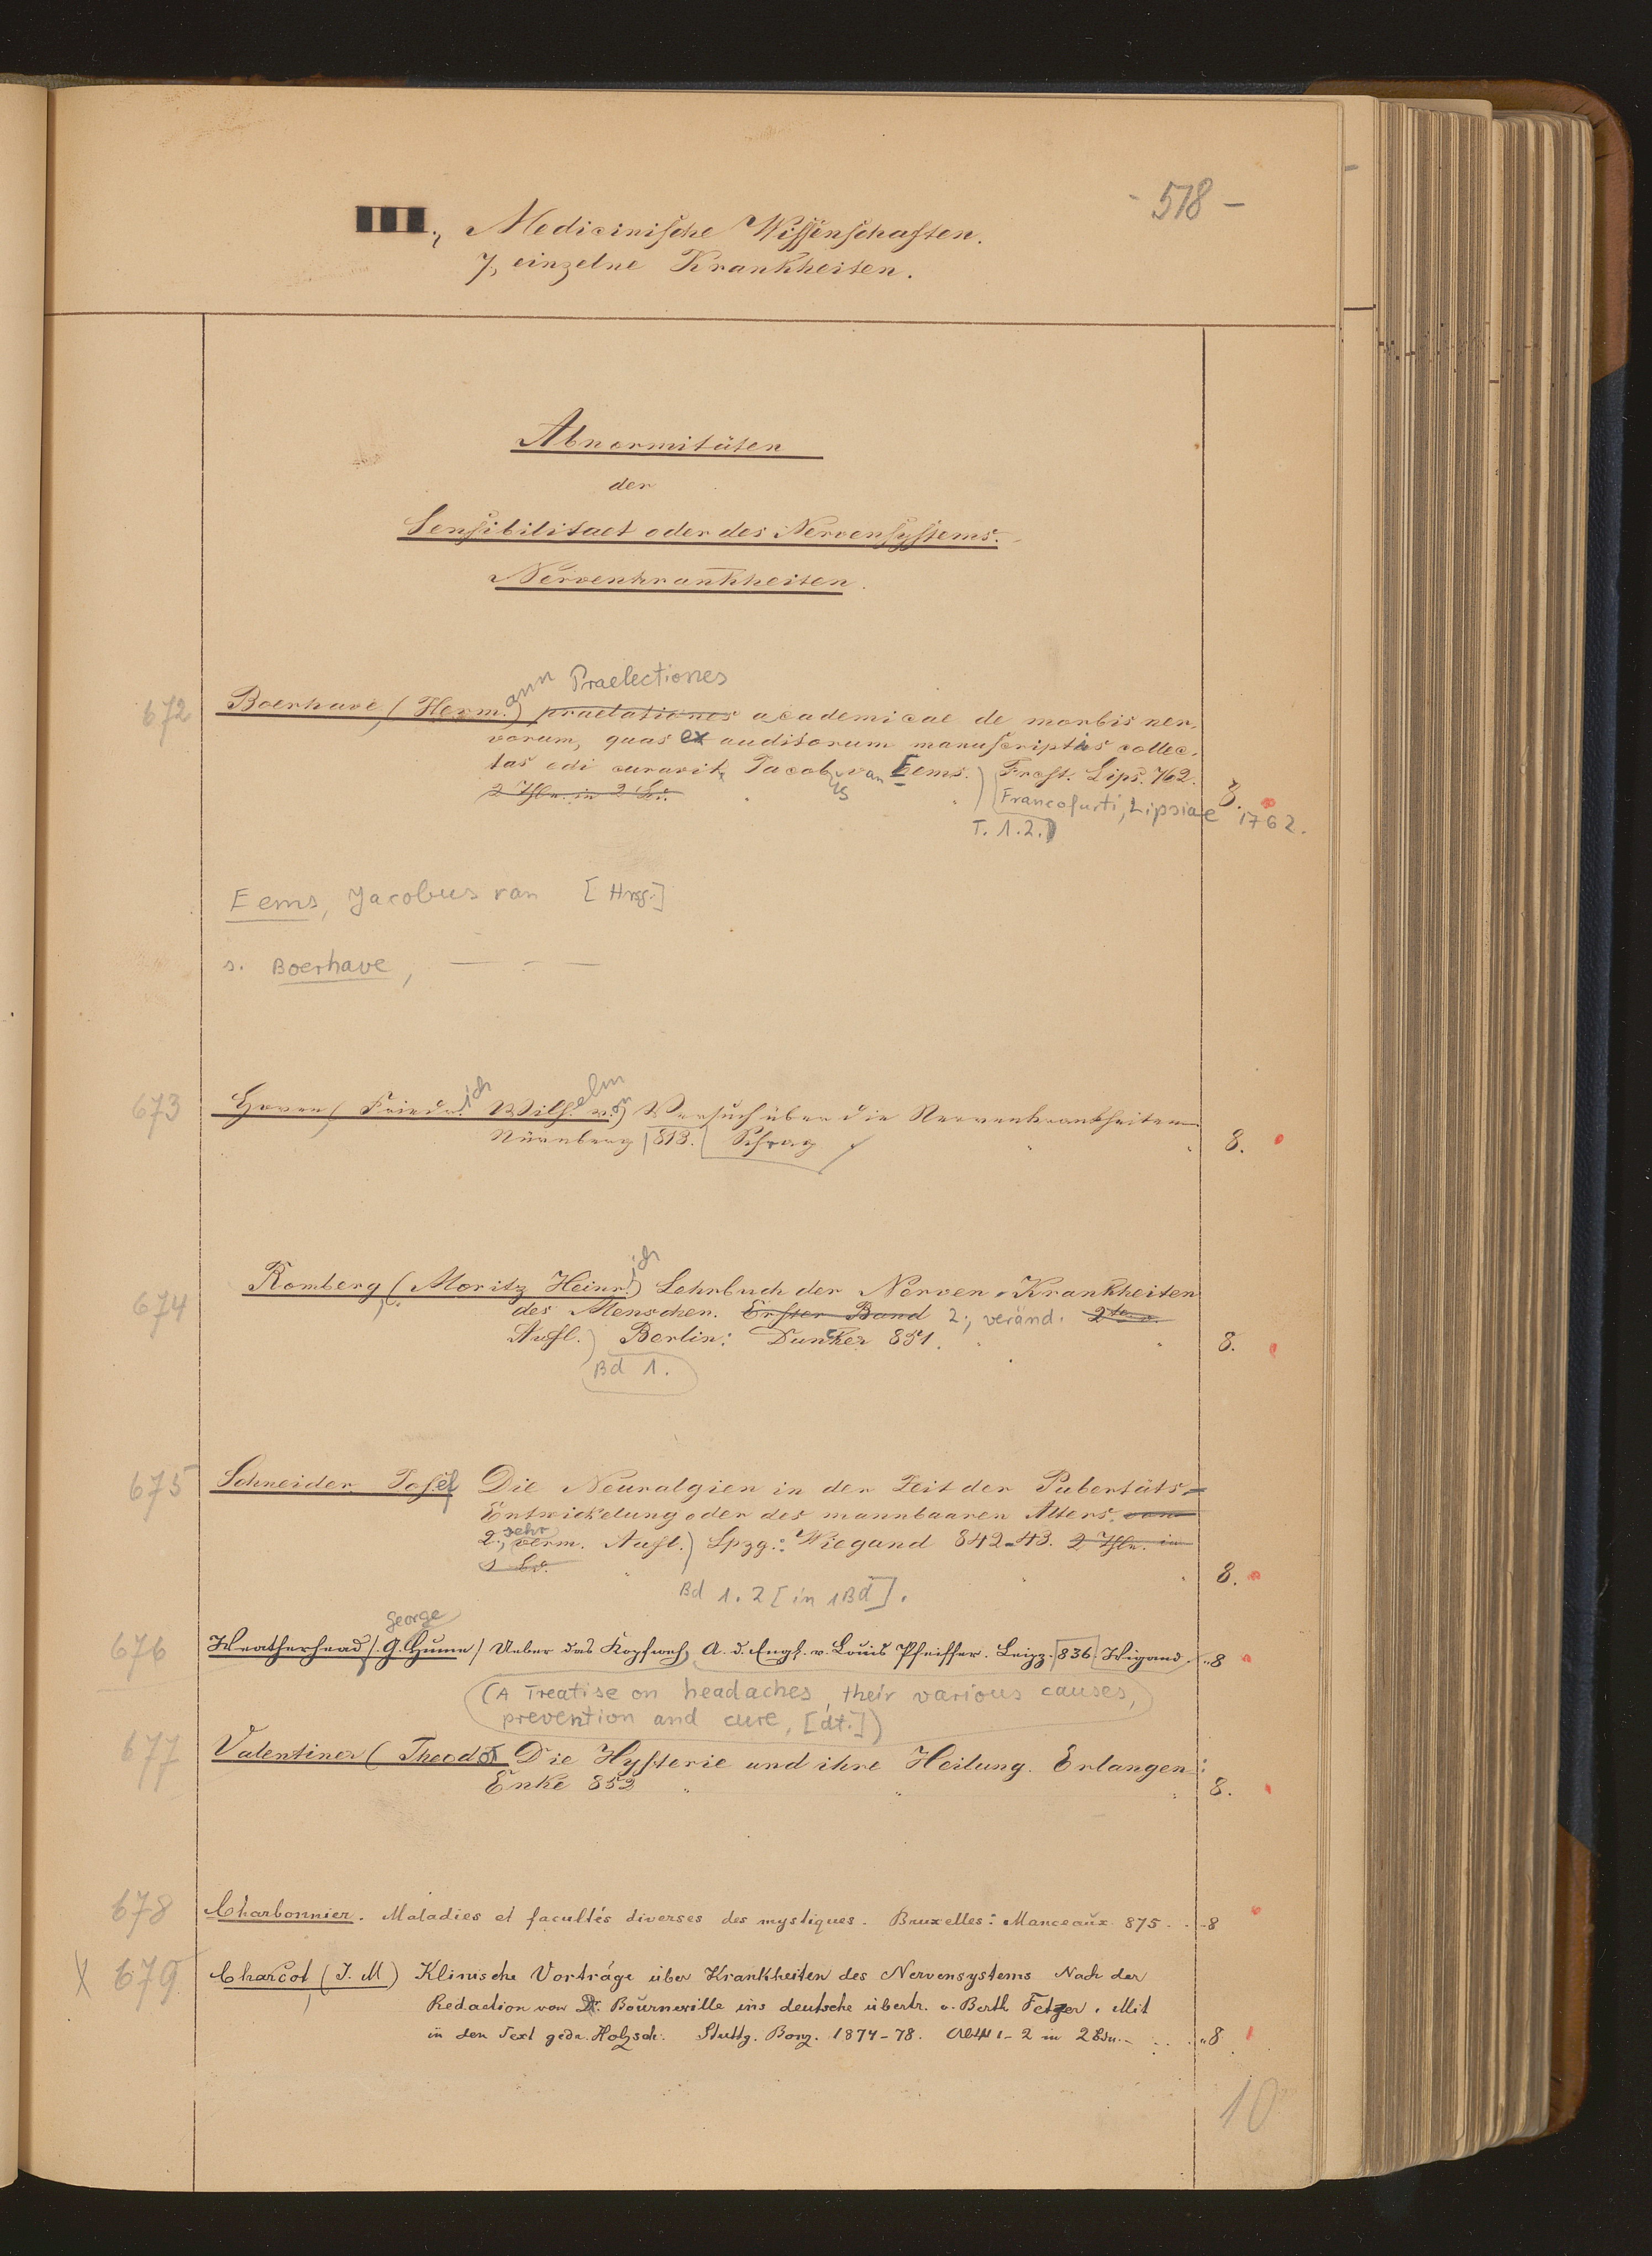 - 518 -
III., Medicinische Wissenschaften.
7, einzelne Krankheiten.
Abnormitäten
der
Sensibilitaet oder des Nervensystems.
Nervenkrankheiten.
ann Praelectiones
672 Boerhave (Herm.) praelationes academicae de morbis ner,
vorum, quas ex auditorum manuscriptis collec,
tas edi curavit Jacobus van Eems.) Frcft. Lips. 762.
2 Thle. in 2 Bd. 8.
Francofurti, Lipsiae 1762.
T. 1.2.)
Eems, Jacobus van [Hrsg.]
s. Boerhave, — - —
673 Hoven (Friedrich Wilhelm v.) Versuch über die Nervenkrankheiten
Nürnberg 813. Schrag 8.
674 Romberg (Moritz Heinrich) Lehrbuch der Nerven-Krankheiten
des Menschen. Erster Band 2., veränd. 2te v.
Aufl.) Berlin: Duncker 851. 8.
Bd 1.
675 Schneider Josef Die Neuralgien in der Zeit der Pubertäts-
Entwickelung oder des mannbaaren Alters.
2., sehr verm. Aufl.) Lpzg.: Wiegand 842-43. 2 Thle. in
1 Bd. 8.
Bd 1.2 [in 1 Bd].
George
676 Weatherhead (G. Hume) Ueber das Kopfweh, A. d. Engl. v. Louis Pfeiffer. Leipz. 836 Wigand. „8
(A Treatise on headaches, their various causes,
prevention and cure, [dt.])
677 Valentiner (Theodor Die Hysterie und ihre Heilung. Erlangen:
Enke 852 8.
678 Charbonnier. Maladies et facultés diverses des mystiques. Bruxelles: Manceaux 875. . -8
X 679 Charcot (J. M) Klinische Vorträge über Krankheiten des Nervensystems Nach der
Redaction von Dr. Bourneville ins deutsche übertr. v. Berth Fetzer. Mit
in den Text gedr. Holzsch. Stuttg. Bonz. 1874-78. 1-2 in 2 Bdn. „8
10